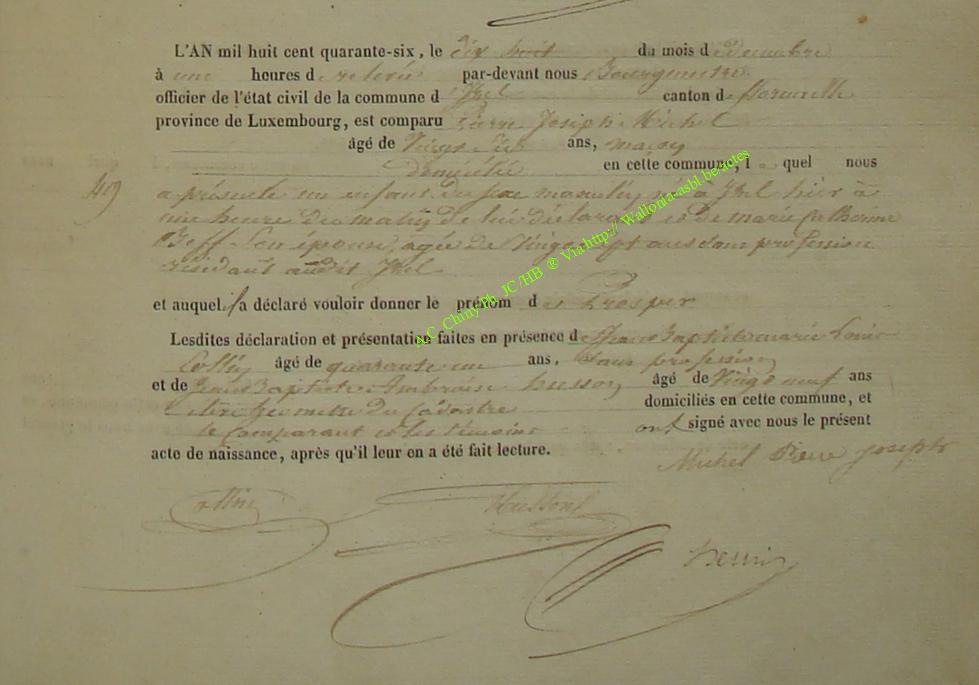 L'AN mil huit cent quarante-six, le dix huit du mois d décembre
à une heures d relevée par-devant nous Bourgmestre
officier de l'état civil de la commune d Izel canton d Florenville
province de Luxembourg, est comparu Pierre Joseph Michel
âgé de Vingt six ans, maçon
domicilié en cette commune, l quel nous
49
a présenté un enfant du sexe masculin né à Izel hier à
une heure du matin de lui déclarant et de marie Catherine
son épouse, agée de Vingt sept ans sans profession
résidant audit Izel
et auquel il a déclaré vouloir donner le prénom d e Prosper
Lesdites déclaration et présentation faites en présence d e Jean Baptiste marie Louis
Collin âgé de quarante un ans, sans profession
et de Jean Baptiste Ambroise husson âgé de Vingt neuf ans
géometre du Cadastre domiciliés en cette commune, et
le Comparant et les témoins ont signé avec nous le présent
acte de naissance, après qu'il leur en a été fait lecture.
Michel Pierre Joseph
ollin Husson
A.C. Chiny Ph. JC/HB ® Via http://Wallonia-asbl.be.actes